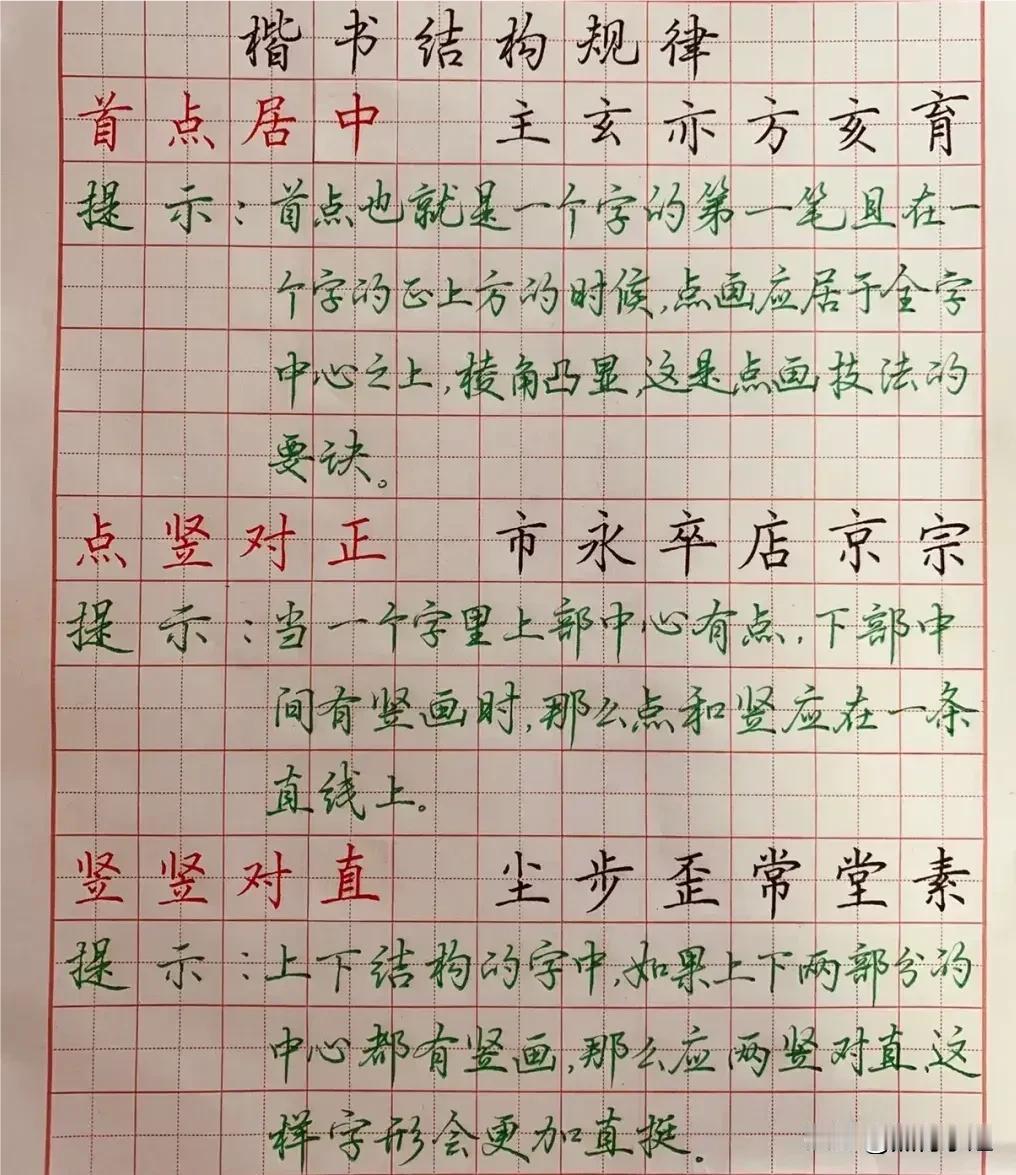 楷书结构规律
首点居中 主玄亦方亥育
提示：首点也就是一个字的第一笔且在一
个字的正上方的时候,点画应居于全字
中心之上,棱角凸显,这是点画技法的
要诀。
点竖对正 市永卒店京宗
提示：当一个字里上部中心有点,下部中
间有竖画时,那么点和竖应在一条
直线上。
竖竖对直 尘步歪常堂素
提示：上下结构的字中,如果上下两部分的
中心都有竖画,那么应两竖对直,这
样字形会更加直挺.